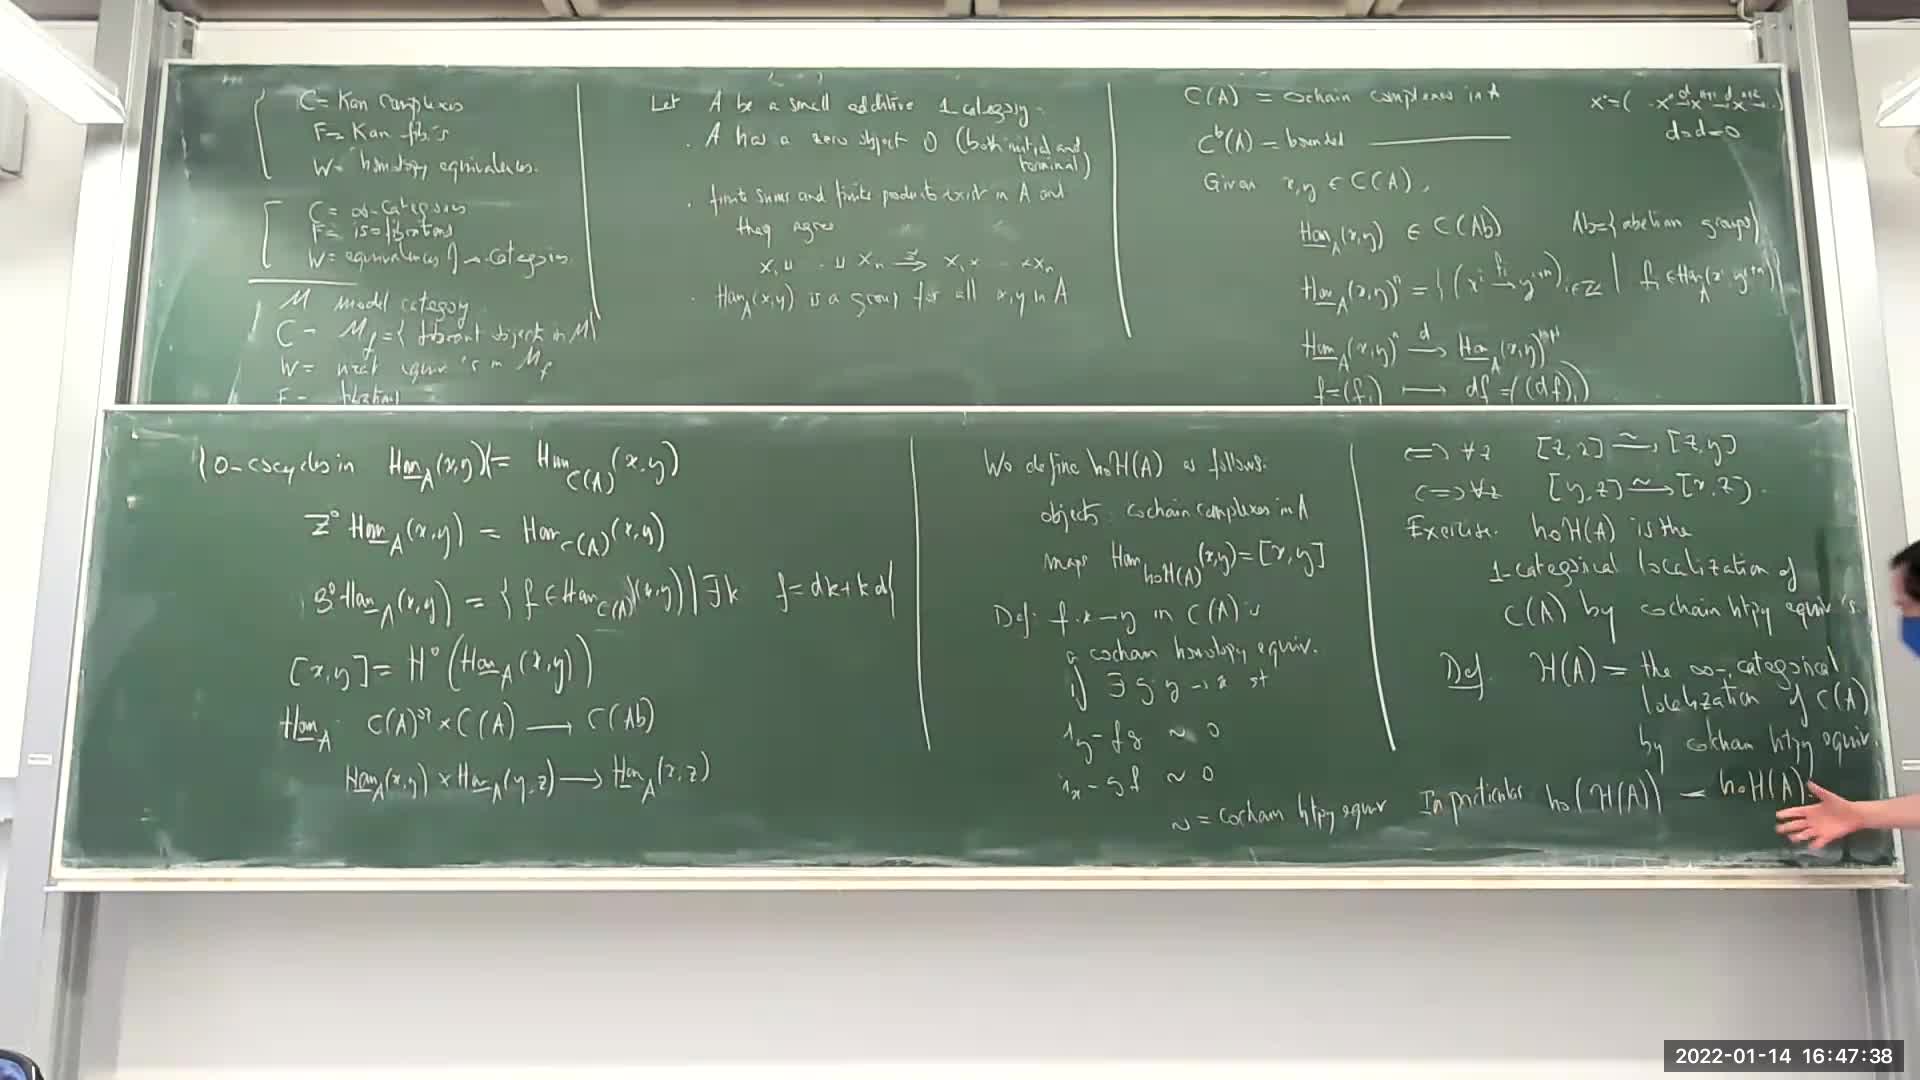 C = Kan complexes
F = Kan fib.'s
W = homotopy equivalences.
C = ∞-categories
F = isofibrations
W = equivalences of ∞-categories
M model category
C = M_f = { fibrant objects in M }
W = weak equiv's in M_f
F = fibrations
Let A be a small additive 1-category.
· A has a zero object 0 (both initial and terminal)
· finite sums and finite products exist in A and
they agree
X_1 ⊔ ... ⊔ X_n ≅→ X_1 × ... × X_n
· Hom_A(x,y) is a group for all x,y in A
C(A) = cochain complexes in A
d∘d=0
C^b(A) = bounded ———
Given x,y ∈ C(A),
Hom_A(x,y) ∈ C(Ab) Ab={abelian groups}
Hom_A(x,y)^n = { (x^i →^{f_i} y^{i+n})_{i∈Z} | f_i ∈ Hom_A(x^i, y^{i+n}) }
Hom_A(x,y)^n →^d Hom_A(x,y)^{n+1}
f=(f_i) ⟼ df = ((df)_i)
{0-cocycles in Hom_A(x,y)} = Hom_{C(A)}(x,y)
Z^0 Hom_A(x,y) = Hom_{C(A)}(x,y)
B^0 Hom_A(x,y) = { f ∈ Hom_{C(A)}(x,y) | ∃k f=dk+kd }
[x,y] = H^0(Hom_A(x,y))
Hom_A : C(A)^{op} × C(A) → C(Ab)
Hom_A(x,y) × Hom_A(y,z) → Hom_A(x,z)
We define hoH(A) as follows:
objects: cochain complexes in A
maps Hom_{hoH(A)}(x,y) = [x,y]
Def: f: x→y in C(A) is
a cochain homotopy equiv.
if ∃ g: y→x st
1_y - fg ~ 0
1_x - gf ~ 0
~ = cochain htpy equiv
⟺ ∀z [z,x] ≅→ [z,y]
⟺ ∀z [y,z] ≅→ [x,z].
Exercise. hoH(A) is the
1-categorical localization of
C(A) by cochain htpy equiv's.
Def. H(A) = the ∞-categorical
localization of C(A)
by cochain htpy equiv.
In particular ho(H(A)) = hoH(A).
2022-01-14 16:47:38